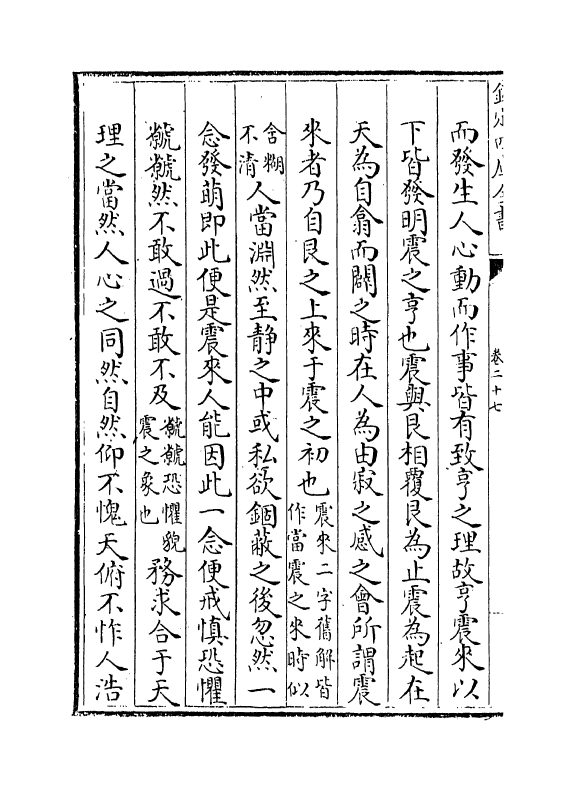 欽定四庫全書
卷二十七
而發生人心動而作事皆有致亨之理故亨震來以
下皆發明震之亨也震與艮相覆艮為止震為起在
天為自翕而闢之時在人為由寂之感之會所謂震
來者乃自艮之上來于震之初也震來二字舊解皆
作當震之來時似
含糊
不清人當淵然至靜之中或私欲錮蔽之後忽然一
念發萌即此便是震來人能因此一念便戒慎恐懼
虩虩然不敢過不敢不及虩虩恐懼貌
震之象也務求合于天
理之當然人心之同然自然仰不愧天俯不怍人浩